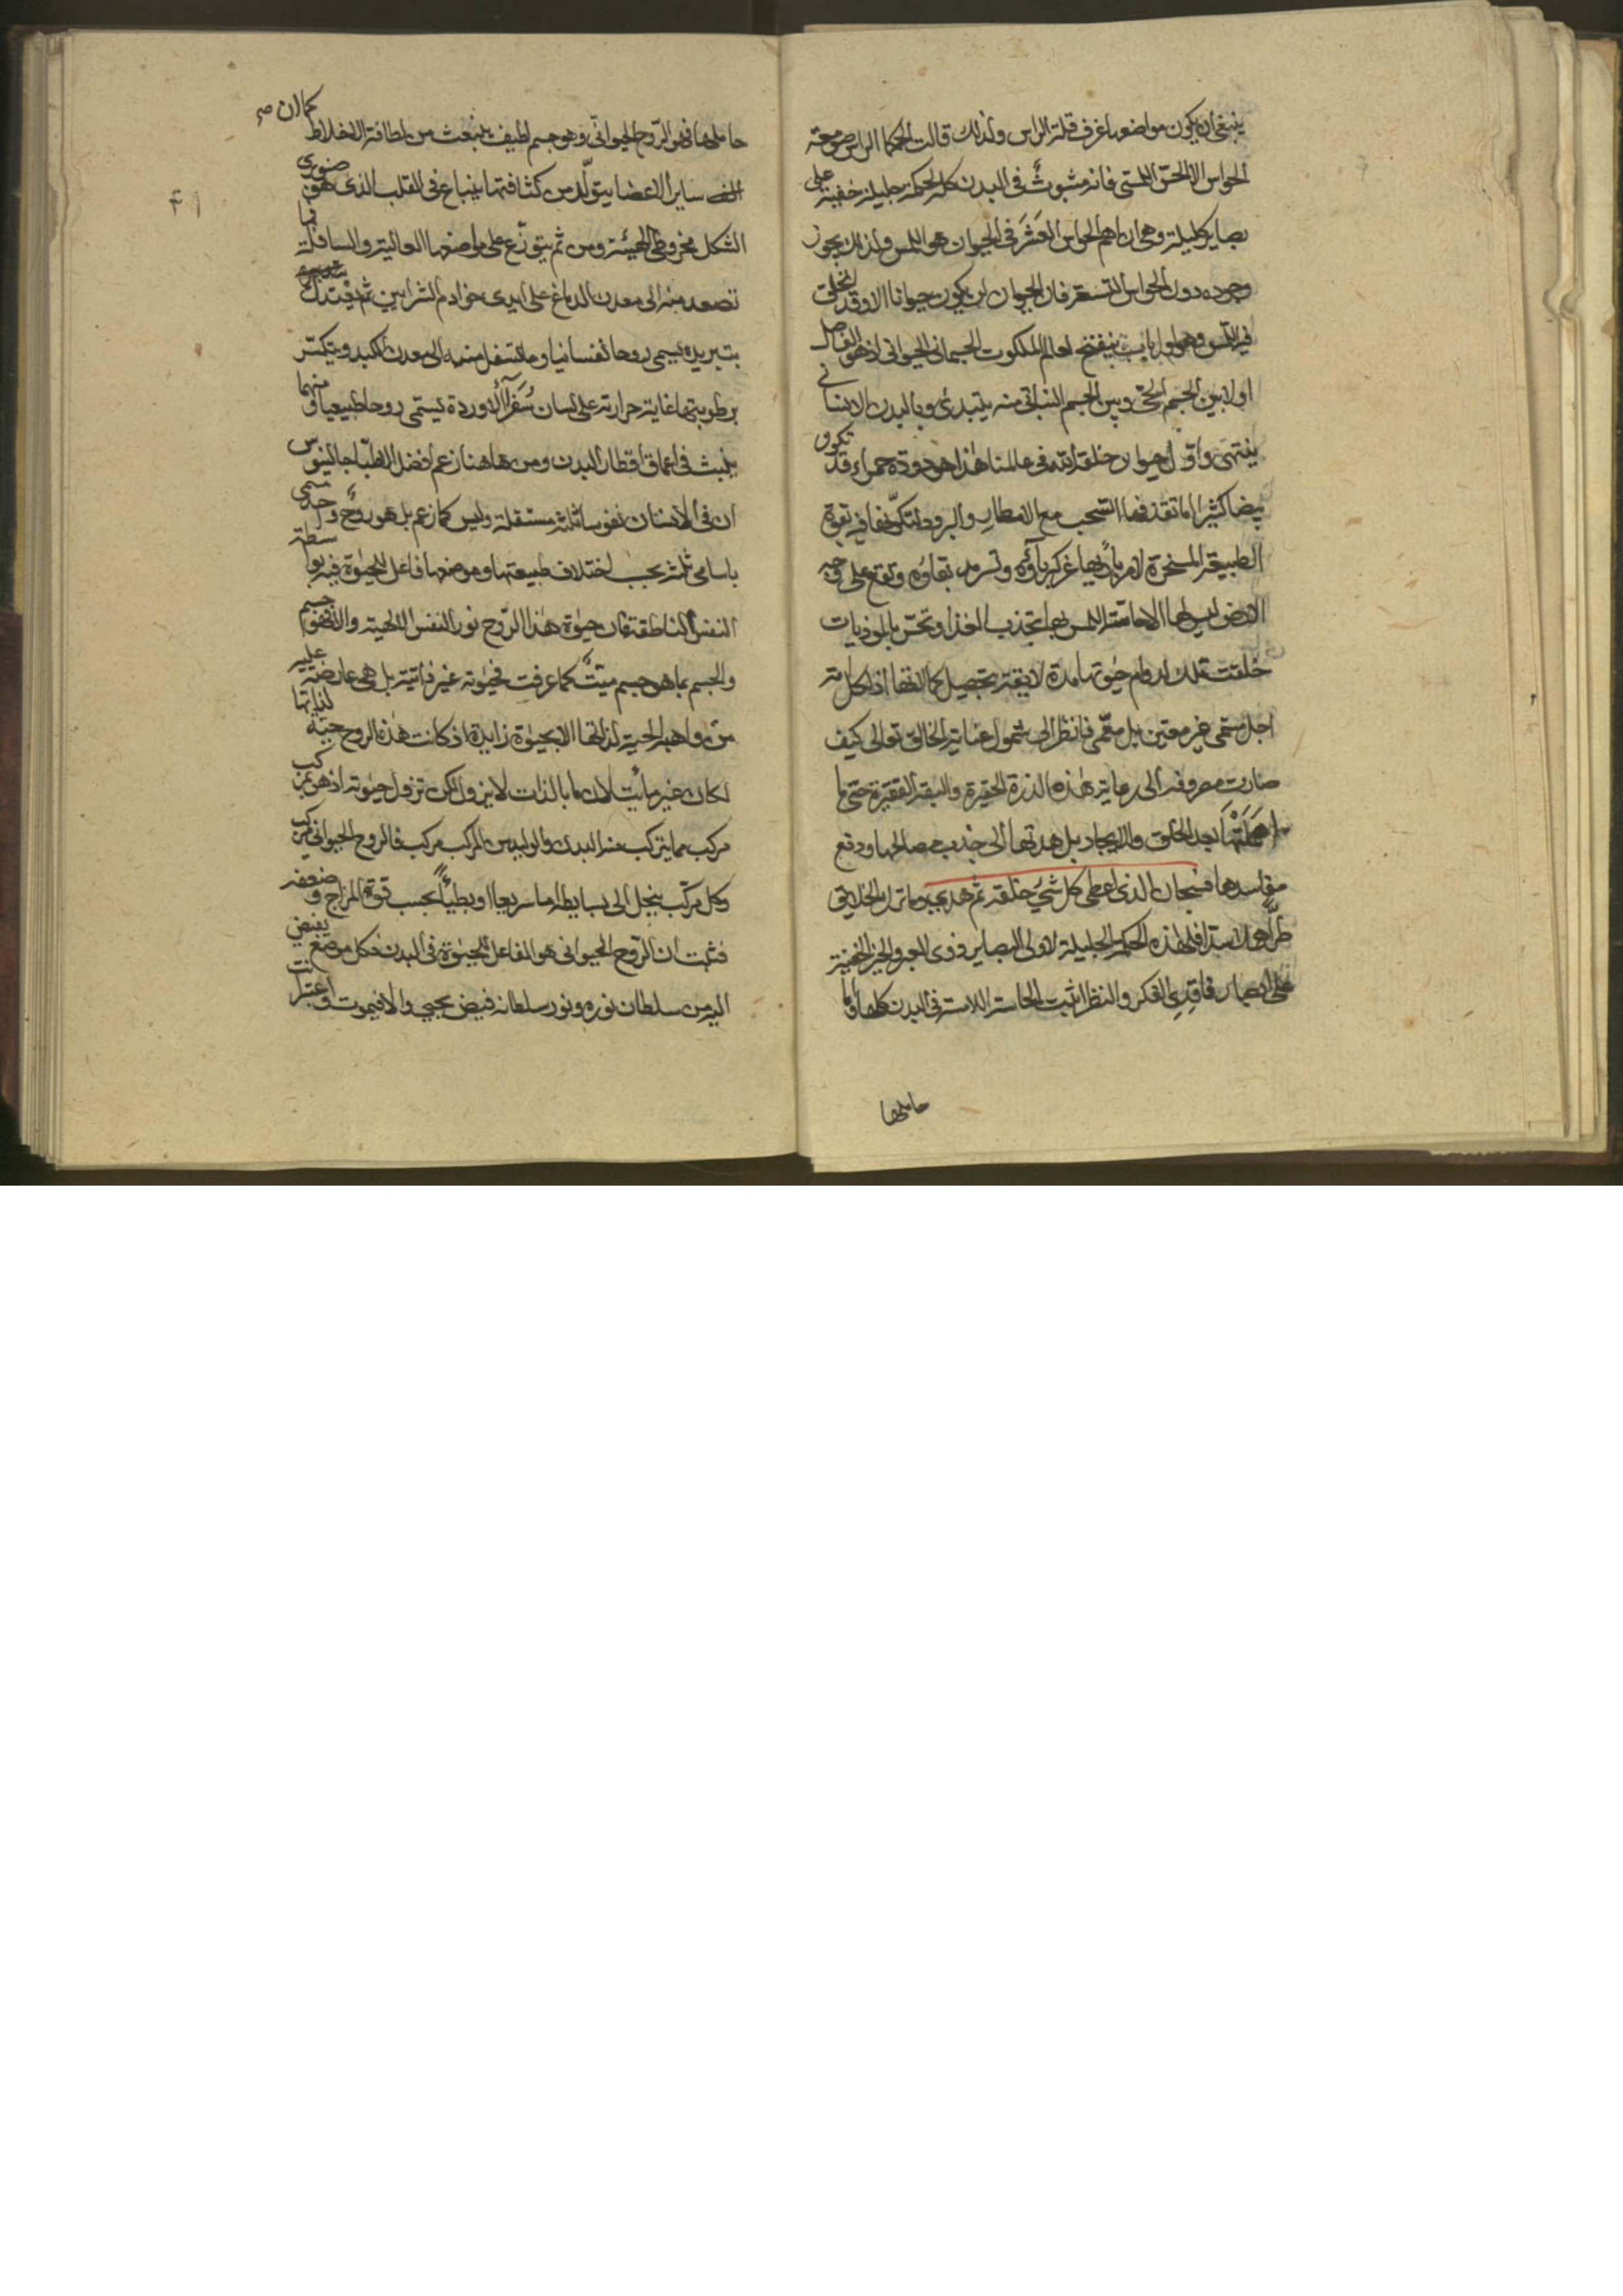 ينبغي ان يكون مواضعها غرف قلة الراس ولذلك قالت الحكما الراس صومعة
الحواس الا الحس اللمسي فانه مبثوث في البدن كله لحكمة جليلة خفية على
بصاير كليلة وهي ان اهم الحواس العشر في الحيوان هو اللمس ولذلك يجوز
وجوده دون الحواس التسعة فان الحيوان لن يكون حيوانا الا وقد انخلق
فيه اللمس وهو اول باب ينفتح لعالم الملكوت الجسماني الحيواني اذ هو الفاصل
اولا بين الجسم الحي وبين الجسم النباتي منه يبتدئ وبالبدن الانساني
ينتهي واول حيوان خلقه الله في عالمنا هذا هو دودة حمراء قد تكون
بيضا كثيرا ما تقذفها السحب مع الامطار والبرود لتكونها فيه بقوة
الطبيعة المسخرة لامر باريها عز كبرياؤه وتسرمد بقاؤه وتقع على وجه
الارض ليس لها الا حاسة اللمس بها تجذب الغذا وتحس بالموذيات
خلقت تلك لدوام حيوتها مدة لايقة بتحصيل كمالاتها اذ لكل
اجل مسمى غير معين بل معمى فانظر الى شمول عناية الخالق تعالى كيف
صارت مصروفة الى رعاية هذه الذرة الحقيرة والبقة الفقيرة حتى ما
اهملتها بعد الخلق والايجاد بل هدتها الى جذب مصالحها ودفع
مفاسدها فسبحان الذي اعطى كل شيء خلقه ثم هدى وما ترك الخلايق
الحكمة الجليلة لاولى البصاير وذوى العبر الخفية
على ابصار فاقدي الفكر والنظر اثبت الحاسة اللامسة في البدن كلها واما
حاملها
حاملها فهو الروح الحيواني وهو جسم لطيف ينبعث من لطافة الاخلاط
كما ان صح
ساير الاعضا يتولد من كثافتها ينباع في القلب الذي هو صنوبري
الشكل مخروطي الهيئة ومن ثم يتوزع على مواضعها العالية والسافلة فما
تصعد منه الى معدن الدماغ على ايدي خوادم الشرايين ثم يعتدل
بتبريده يسمى روحا نفسانيا وما تسفل منه الى معدن الكبد ويتكسر
برطوبتها غاية حرارته على لسان سفراء الاوردة يسمى روحا طبيعيا ومنهما
ينبث في اعماق اقطار البدن ومن هاهنا زعم افضل الاطبا جالينوس
ان في الانسان نفوسا ثلثة مستقلة وليس كما زعم بل هو روح واحد يسمى
باسامي ثلثة بحسب اختلاف طبيعتها وموضعها فاعل للحيوة فيه بواسطة
النفس الناطقة فان حيوة هذا الروح نور النفس الالهية والا فهو جسم
والجسم بما هو جسم ميت كما عرفت فحيوته غير ذاتية بل هي عارضة عليه
من واهبه الحية لذاتها لا بحيوة زايدة اذ كانت هذه الروح حية لذاتها
لكان غير مائت لان ما بالذات لا يزول لكن تزول حيوته اذ هو مركب
مركب مما يتركب منه البدن والوليد من المركب مركب فالروح الحيواني مركب
وكل مركب ينحل الى بسايطه اما سريعا او بطيئا بحسب قوة المزاج وضعفه
فثبت ان الروح الحيواني هو الفاعل للحيوة في البدن فكل موضع يفيض
اليه من سلطان نوره ونور سلطانه فيض يحيي والا فيموت واعتبر
۴۱